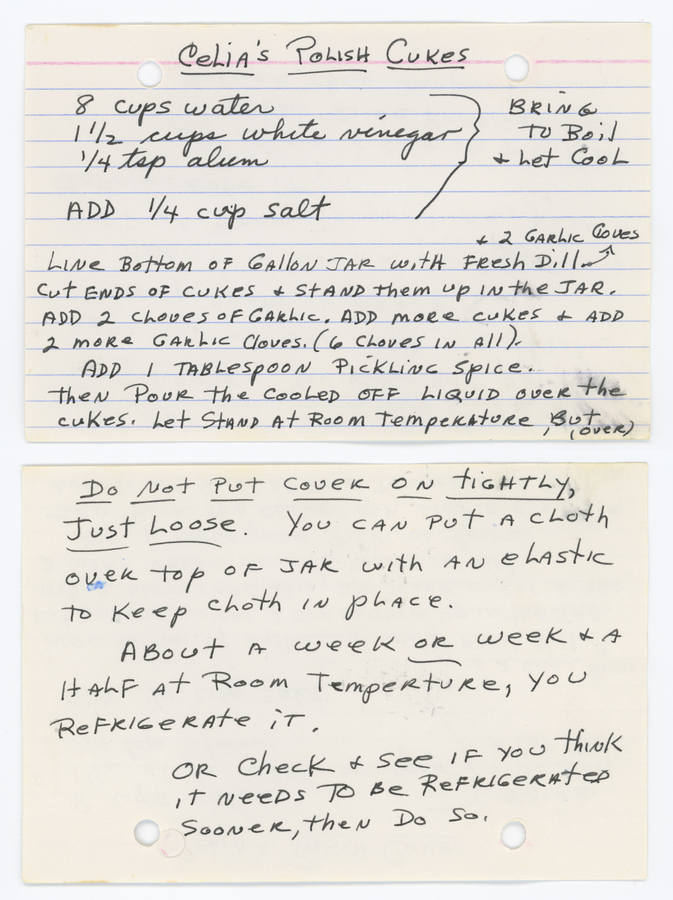 Celia's Polish Cukes
8 cups water
1 1/2 cups white vinegar
1/4 tsp alum
Bring
to Boil
+ Let Cool
ADD 1/4 cup salt
+ 2 Garlic Cloves
Line Bottom of Gallon Jar with Fresh Dill.
Cut ends of cukes + stand them up in the jar.
ADD 2 cloves of Garlic. ADD more cukes + ADD
2 more Garlic Cloves. (6 cloves in all).
ADD 1 Tablespoon Pickling Spice.
Then Pour the cooled off liquid over the
cukes. Let stand at Room Temperature, But
(over)
Do Not Put Cover on tightly,
Just Loose. You can put a cloth
over top of jar with an elastic
to keep cloth in place.
About a week or week + a
Half at Room Temperture, you
Refrigerate it.
OR Check + see if you think
it needs to be Refrigerated
sooner, then Do so.